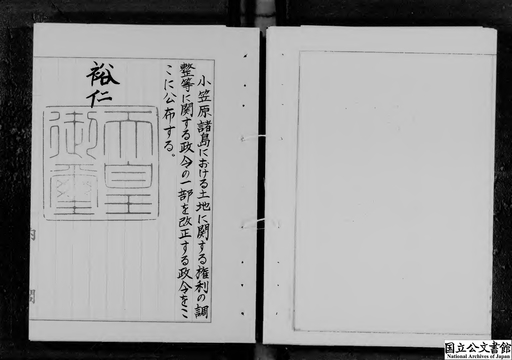 小笠原諸島における土地に関する権利の調
整等に関する政令の一部を改正する政令をこ
こに公布する。
裕仁
天皇
御璽
内
閣
国立公文書館
National Archives of Japan